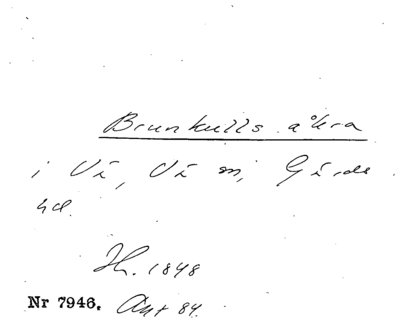 Brunkulls åkra
i Vä, Vä sn, Gärds
hd.
Hn. 1848
Nr 7946. Akt 84.